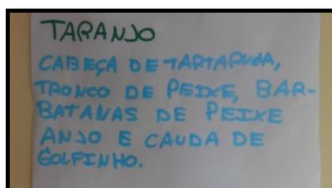 TARANJO
CABEÇA DE TARTARUGA,
TRONCO DE PEIXE, BAR-
BATANAS DE PEIXE
ANJO E CAUDA DE
GOLFINHO.